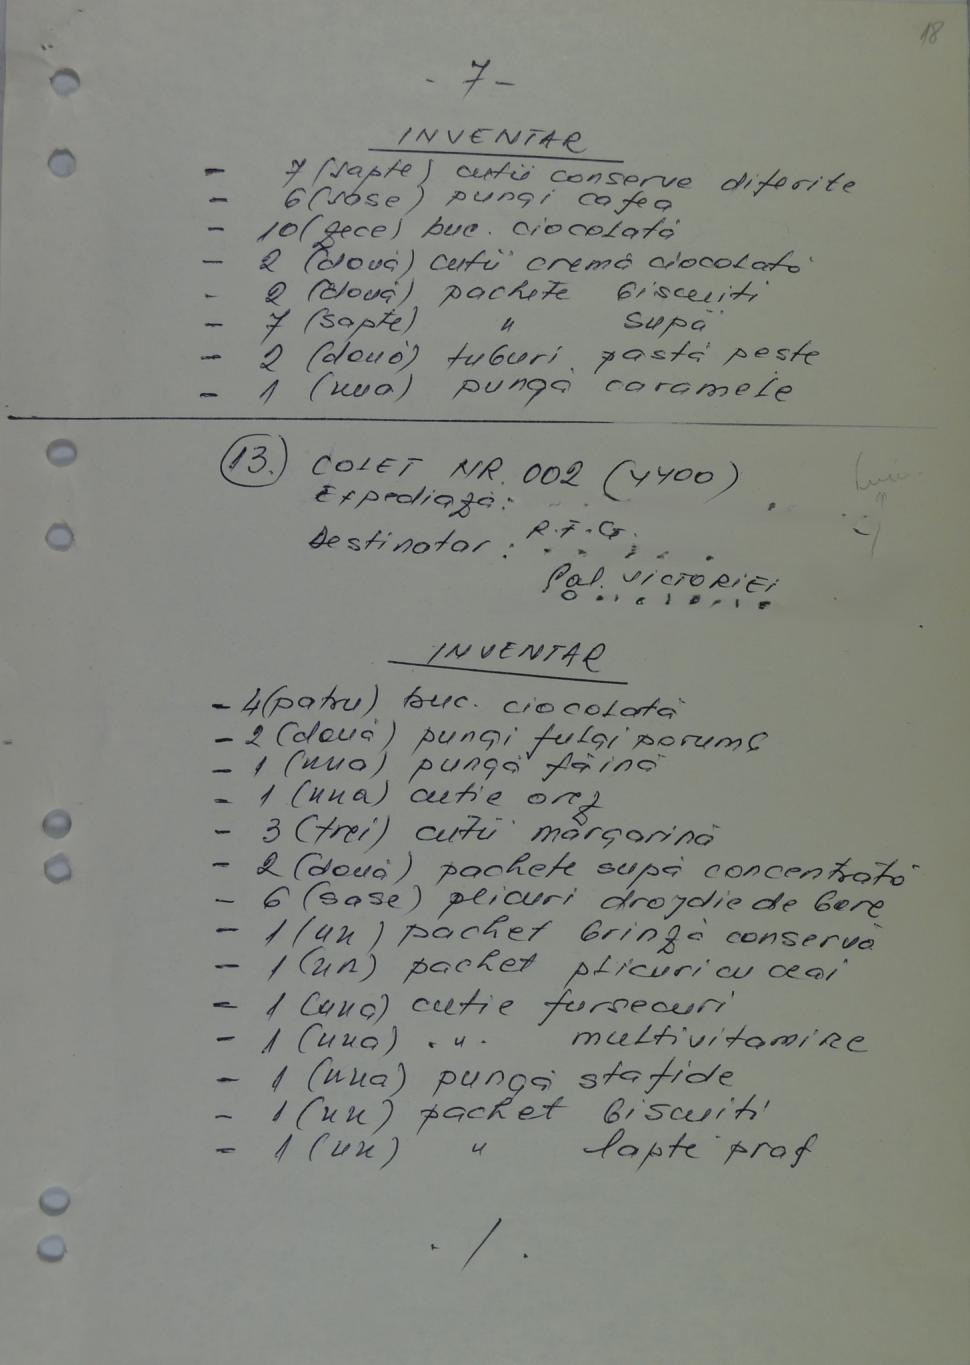 18
- 7 -
INVENTAR
- 7 (sapte) cutii conserve diferite
- 6 (sase) pungi cafea
- 10 (zece) buc. ciocolată
- 2 (două) cutii cremă ciocolată
- 2 (două) pachete biscuiti
- 7 (sapte) " supă
- 2 (două) tuburi pastă peste
- 1 (una) pungă caramele
13. COLET NR. 002 (4400)
Expediază:
R.F.G.
Destinatar:
Pal. VICTORIEI
INVENTAR
- 4 (patru) buc. ciocolată
- 2 (două) pungi fulgi porumb
- 1 (una) pungă făină
- 1 (una) cutie orez
- 3 (trei) cutii margarină
- 2 (două) pachete supă concentrată
- 6 (sase) plicuri drojdie de bere
- 1 (un) pachet brinză conservă
- 1 (un) pachet plicuri cu ceai
- 1 (una) cutie fursecuri
- 1 (una) . " . multivitamine
- 1 (una) pungă stafide
- 1 (un) pachet biscuiti
- 1 (un) " lapte praf
. / .